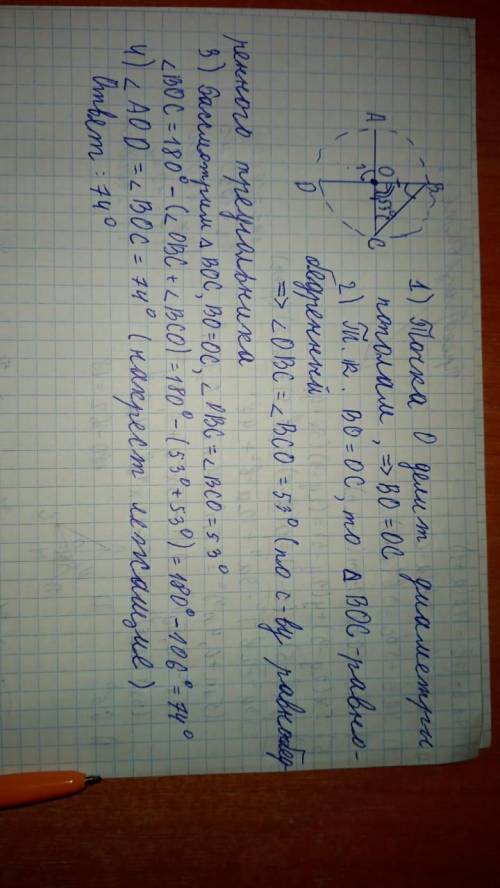 A
B
O
53°
C
D
1) Точка О делит диаметры
пополам, => BO=OC
2) Т.к. BO=OC, то △BOC-равно-
бедренный
=> ∠OBC=∠BCO=53° (по с-ву равнобед
ренного треугольника
3) Рассмотрим △BOC, BO=OC, ∠OBC=∠BCO=53°
∠BOC=180°-(∠OBC+∠BCO)=180°-(53°+53°)=180°-106°=74°
4) ∠AOD=∠BOC=74° (накрест лежащие)
Ответ: 74°